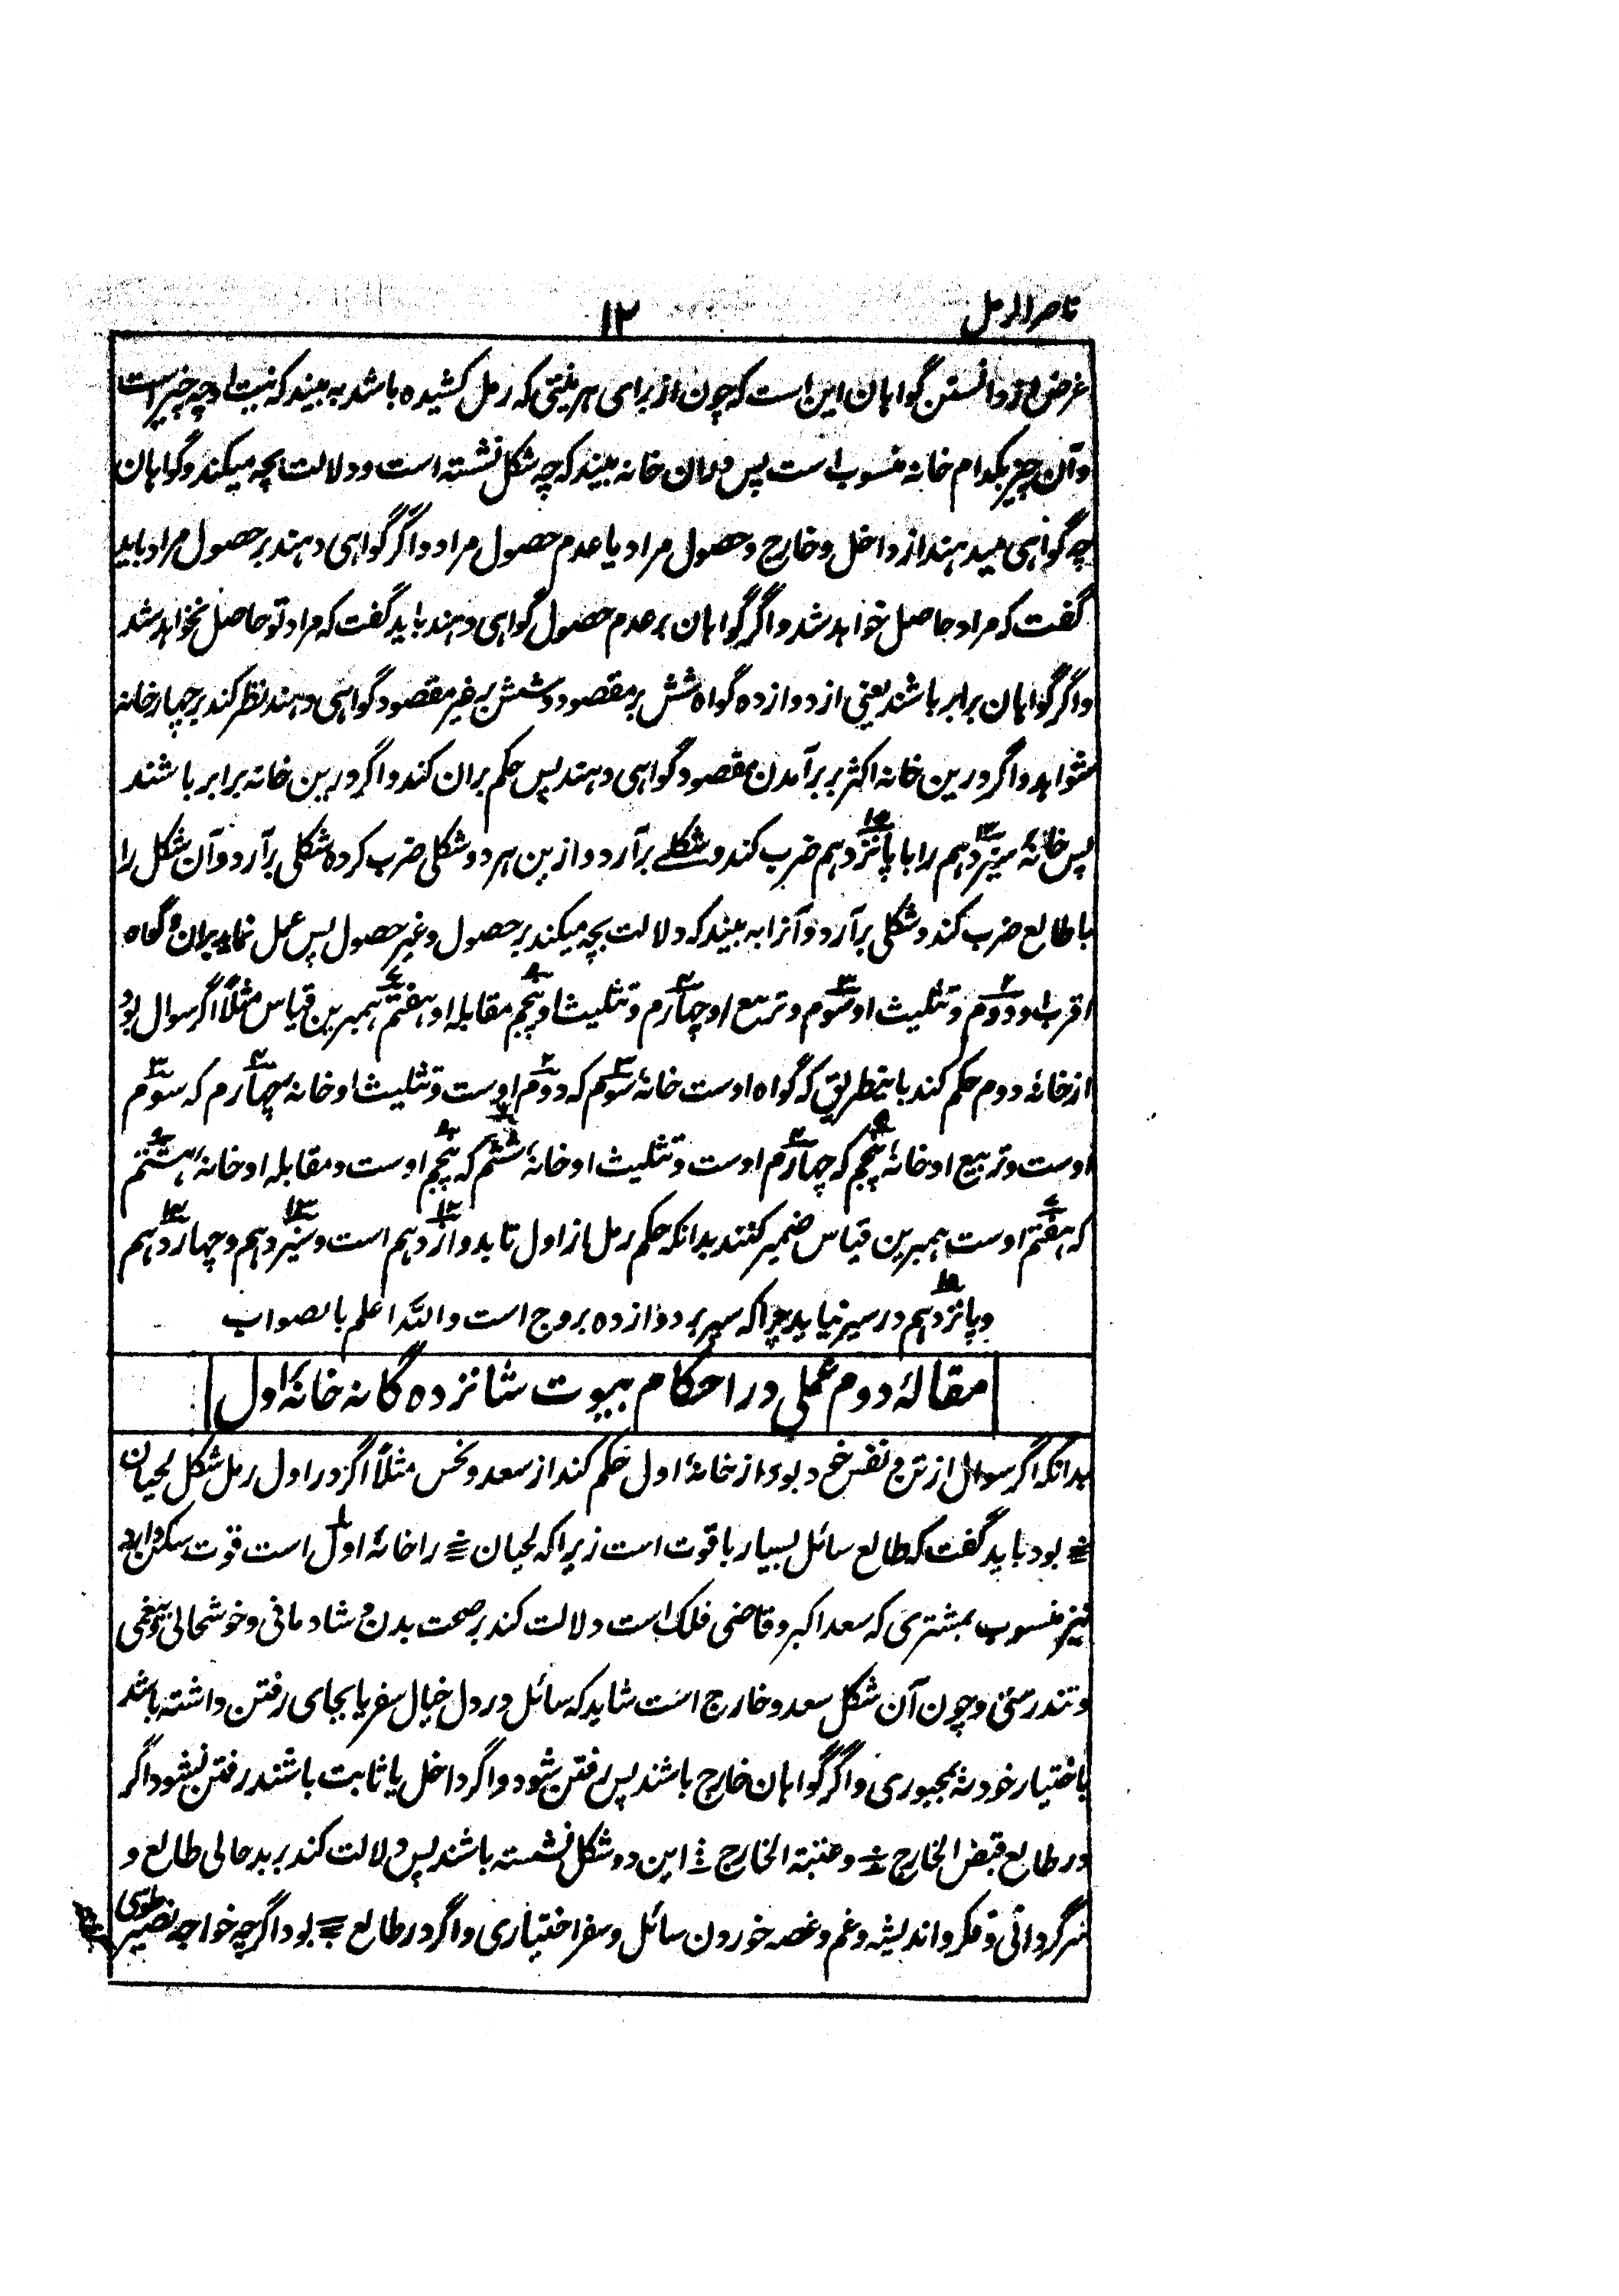 ناصر الرمل
۱۲
غرض از دانستن گواہان این است کہ چون از برای ہر نیتی کہ رمل کشیدہ باشد بہ بیند کہ نیت او چہ چیز است
و آن چیز بکدام خانہ منسوب است پس دران خانہ بیند کہ چہ شکل نشستہ است و دلالت بچہ میکند و گواہان
چہ گواہی میدہند از داخل و خارج و حصول مراد یا عدم حصول مراد و اگر گواہی دہند بر حصول مراد باید
گفت کہ مراد حاصل خواہد شد و اگر گواہان بر عدم حصول گواہی دہند باید گفت کہ مراد تو حاصل نخواہد شد
و اگر گواہان برابر باشند یعنی از دوازدہ گواہ شش بر مقصود و شش بر غیر مقصود گواہی دہند نظر کند بر چہار خانہ
شواہد و اگر درین خانہ اکثر بر برآمدن مقصود گواہی دہند پس حکم بران کند و اگر درین خانہ برابر باشند
پس خانۂ سیزدہم را با پانزدہم ضرب کند و شکلے برآرد و ازین ہر دو شکلی ضرب کردہ شکلی برآرد و آن شکل را
با طالع ضرب کند و شکلی برآرد و آنرا بہ بیند کہ دلالت بچہ میکند بر حصول و غیر حصول پس عمل نماید بران و گواہ
اقرب او دوم و تثلیث او سوم و تربیع او چہارم و تثلیث او پنجم مقابلہ او ہفتم ہمبرین قیاس مثلاً اگر سوال بود
از خانۂ دوم حکم کند باینطریق کہ گواہ اوست خانۂ سوم کہ دوم اوست و تثلیث او خانہ چہارم کہ سوم
اوست و تربیع او خانۂ پنجم کہ چہارم اوست و تثلیث او خانۂ ششم کہ پنجم اوست و مقابلہ او خانۂ ہشتم
کہ ہفتم اوست ہمبرین قیاس ضمیر کنند بدانکہ حکم رمل از اول تا بدوازدہم است و سیزدہم و چہاردہم
و پانزدہم در سیر نیاید چرا کہ سیر بر دوازدہ بروج است واللہ اعلم بالصواب
مقالۂ دوم عملی در احکام بیوت شانزدہ گانہ خانۂ اول
بدانکہ اگر سوال از تن و نفس خود بود از خانۂ اول حکم کند از سعد و نحس مثلاً اگر در اول رمل شکل لحیان
بود باید گفت کہ طالع سائل بسیار با قوت است زیرا کہ لحیان را خانۂ اول است قوت سکن دارد
نیز منسوب بمشتری کہ سعد اکبر و قاضی فلک است دلالت کند بر صحت بدن و شادمانی و خوشحالی و بیغمی
و تندرستی و چون آن شکل سعد و خارج است شاید کہ سائل در دل خیال سفر یا بجای رفتن داشتہ باشد
باختیار خود نہ بمجبوری و اگر گواہان خارج باشند پس رفتن شود و اگر داخل یا ثابت باشند رفتن نشود اگر
در طالع قبض الخارج و عتبتہ الخارج این دو شکل نشستہ باشند پس دلالت کند بر بدحالی طالع و
سرگردانی و فکر و اندیشہ و غم و غصہ خوردن سائل و سفر اختیاری و اگر در طالع بود اگرچہ خواجہ نصیر طوسی